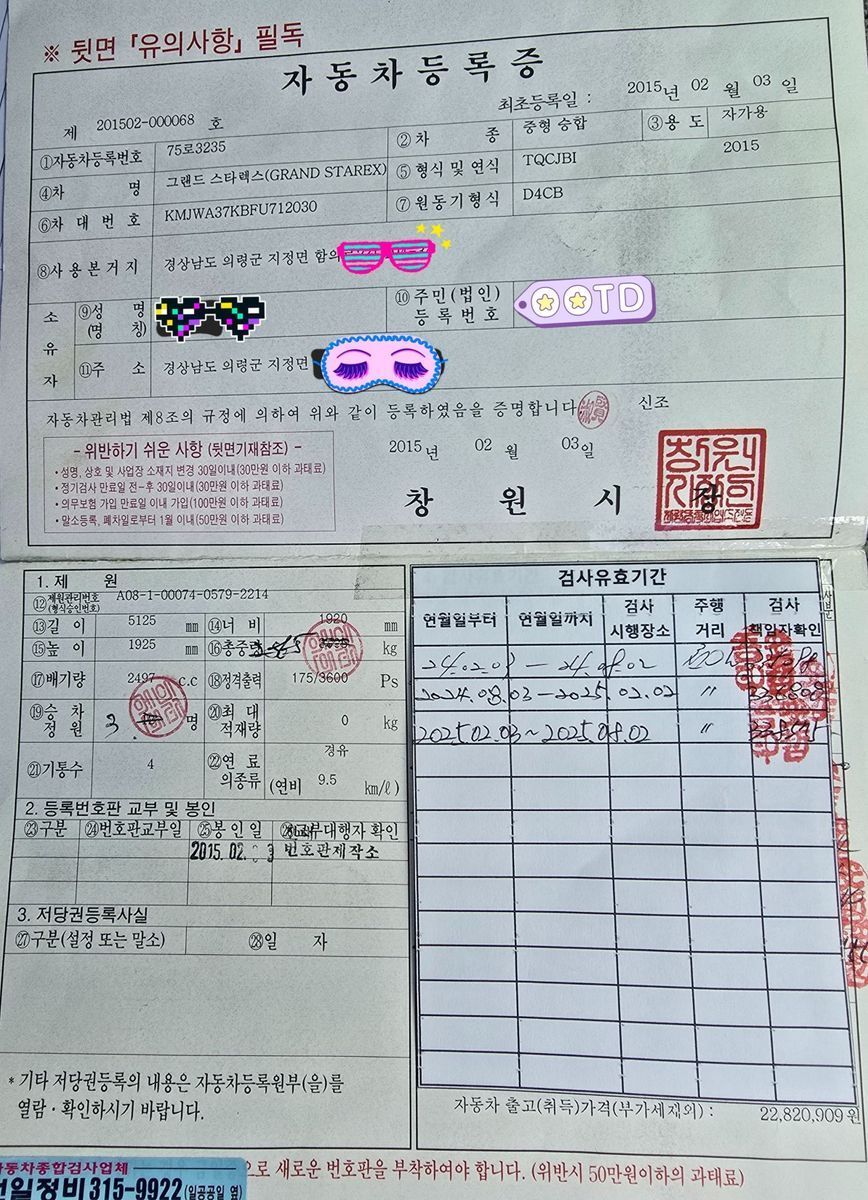 ※ 뒷면 「유의사항」 필독
자동차등록증
제 201502-000068 호
최초등록일 : 2015년 02 월 03 일
①자동차등록번호 75로3235 ②차 종 중형 승합 ③용 도 자가용
④차 명 그랜드 스타렉스(GRAND STAREX) ⑤형식 및 연식 TQCJBI 2015
⑥차 대 번 호 KMJWA37KBFU712030 ⑦원동기형식 D4CB
⑧사 용 본 거 지 경상남도 의령군 지정면 함의
소유자
⑨성 명 (명 칭) ⑩주민(법인) 등록번호 OOTD
⑪주 소 경상남도 의령군 지정면
자동차관리법 제8조의 규정에 의하여 위와 같이 등록하였음을 증명합니다 신조
2015년 02 월 03일
창 원 시 장
- 위반하기 쉬운 사항 (뒷면기재참조) -
• 성명, 상호 및 사업장 소재지 변경 30일이내(30만원 이하 과태료)
• 정기검사 만료일 전-후 30일이내(30만원 이하 과태료)
• 의무보험 가입 만료일 이내 가입(100만원 이하 과태료)
• 말소등록, 폐차일로부터 1월 이내(50만원 이하 과태료)
1. 제 원
⑫제원관리번호 (형식승인번호) A08-1-00074-0579-2214
⑬길 이 5125 mm ⑭너 비 1920 mm
⑮높 이 1925 mm ⑯총중량 kg
⑰배기량 2497 c.c ⑱정격출력 175/3600 Ps
⑲승 차 정 원 3 명 ⑳최 대 적재량 0 kg
㉑기통수 4 ㉒연 료 의종류 경유 (연비 9.5 km/ℓ)
2. 등록번호판 교부 및 봉인
㉓구분 ㉔번호판교부일 ㉕봉 인 일 ㉖교부대행자 확인
2015. 02. 3 번호판제작소
3. 저당권등록사실
㉗구분(설정 또는 말소) ㉘일 자
* 기타 저당권등록의 내용은 자동차등록원부(을)를
열람 · 확인하시기 바랍니다.
검사유효기간
연월일부터 연월일까지 검사 시행장소 주행 거리 검사 책임자확인
24.02.03 – 24.08.02
2024.08.03 – 2025.02.02 〃
2025.02.03 ~ 2025.08.02 〃
자동차 출고(취득)가격(부가세제외) : 22,820,909 원
으로 새로운 번호판을 부착하여야 합니다. (위반시 50만원이하의 과태료)
자동차종합검사업체
일정비 315-9922 (일공공일 옆)